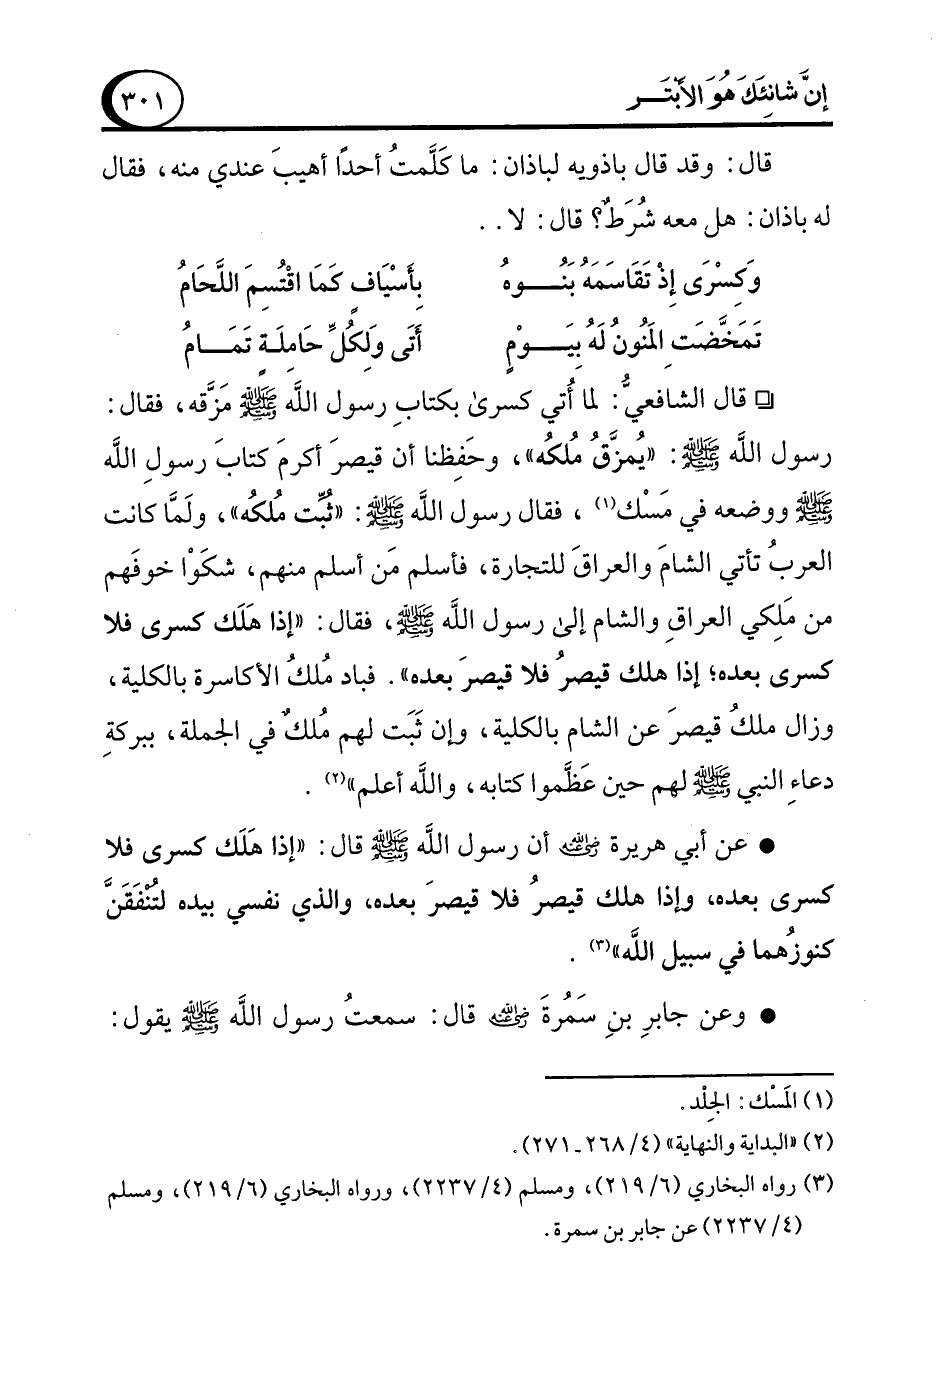 إنَّ شانِئَكَ هُوَ الأَبْتَـــر
٣٠١
قال: وقد قال باذويه لباذان: ما كَلَّمتُ أحدًا أهيبَ عندي منه، فقال
له باذان: هل معه شُرَطٌ؟ قال: لا..
وَكِسْرَى إِذْ تَقَاسَمَهُ بَنُــــوهُ بِأَسْيَافٍ كَمَا اقْتُسِمَ اللَّحَامُ
تَمَخَّضَتِ المَنُونُ لَهُ بِيَـــوْمٍ أَتَى وَلِكُلِّ حَامِلَـةٍ تَمَـــامُ
❏ قال الشافعيُّ: لما أُتي كسرىٰ بكتابِ رسول اللَّه ﷺ مَزَّقه، فقال:
رسول اللَّه ﷺ: «يُمزَّقُ مُلكُه»، وحَفِظنا أن قيصرَ أكرمَ كتابَ رسولِ اللَّه
ﷺ ووضعه في مَسْك(١) ، فقال رسول اللَّه ﷺ: «ثُبِّت مُلكُه»، ولَمَّا كانت
العربُ تأتي الشامَ والعراقَ للتجارة، فأسلم مَن أسلم منهم، شكَوْا خوفَهم
من مَلِكي العراقِ والشام إلىٰ رسول اللَّه ﷺ، فقال: «إذا هَلَك كسرى فلا
كسرى بعده؛ إذا هلك قيصرُ فلا قيصرَ بعده». فباد مُلكُ الأكاسرة بالكلية،
وزال ملكُ قيصرَ عن الشام بالكلية، وإن ثَبَت لهم مُلكٌ في الجملة، ببركةِ
دعاءِ النبي ﷺ لهم حين عَظَّموا كتابه، واللَّه أعلم»(٢) .
● عن أبي هريرة رضي الله عنه أن رسول اللَّه ﷺ قال: «إذا هَلَك كسرى فلا
كسرى بعده، وإذا هلك قيصرُ فلا قيصرَ بعده، والذي نفسي بيده لتُنْفَقَنَّ
كنوزُهما في سبيل اللَّه»(٣) .
● وعن جابرِ بنِ سَمُرةَ رضي الله عنه قال: سمعتُ رسول اللَّه ﷺ يقول:
(١) المَسْك: الجِلْد.
(٢) «البداية والنهاية» (٤/ ٢٦٨ـ٢٧١).
(٣) رواه البخاري (٦/ ٢١٩)، ومسلم (٤/ ٢٢٣٧)، ورواه البخاري (٦/ ٢١٩)، ومسلم
(٤/ ٢٢٣٧) عن جابر بن سمرة.